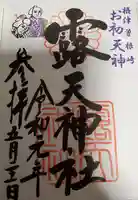 摂津曽根崎
お初天神
露天神社
令和元年
参拝五月三日